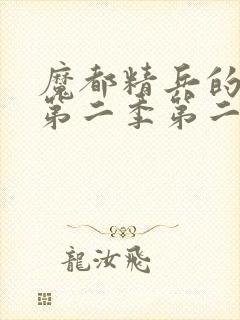 魔都精兵的
第二季第二
龍汝飛